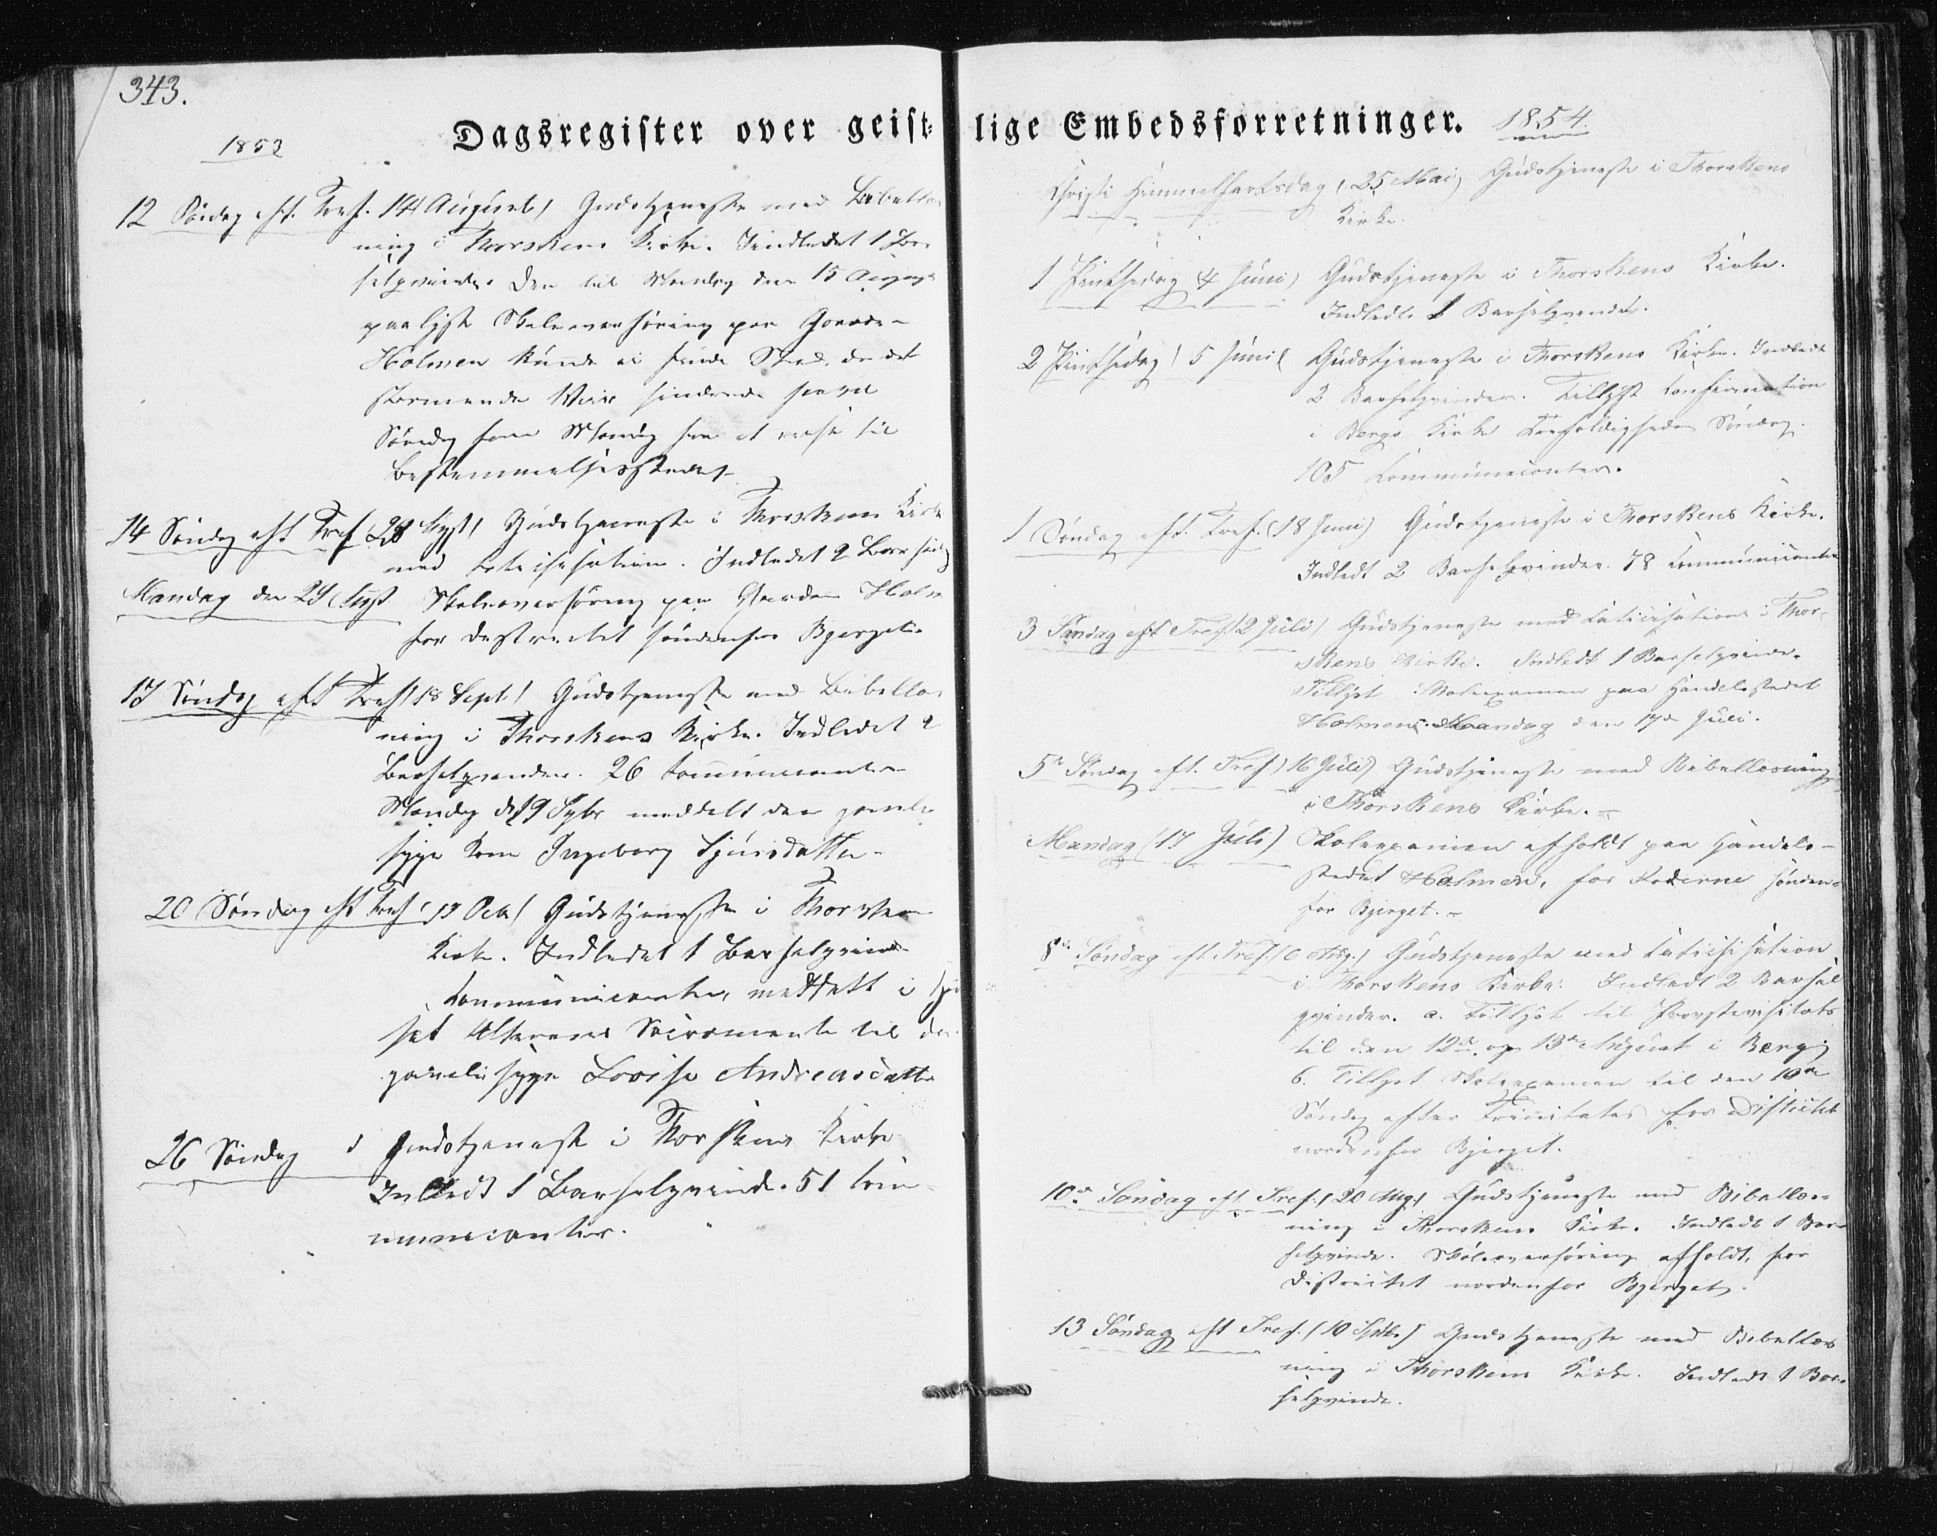 343.
Dagsregister over geist-
1853
12 Søndag eft. Tref. (14 August) Gudstjeneste med Bibellæs
ning i Thorskens Kirke. Indledet 1 Bar
selqvinde. Den til Mandag den 15 August
paalyste Skoleoverhøring paa
Holmen kunde ei finde Sted, da det
stormende Veir hindrede saavel
Søndag som Mandag fra at reise til
Bestemmelsesstedet.
14 Søndag eft Tref (28 Augst) Gudstjeneste i Thorskens Kirke
med Catechisation. Indledet 2 Barselq
Mandag den 29 Augst Skoleoverhøring paa Gaarden Holm
for Destrictet søndenfor Bjerget.
17 Søndag eft Tref (18 Sept) Gudstjeneste med Bibellæs
ning i Thorskens Kirke. Indledet 2
Barselqvinder. 26 Communicanter
Mandag d 19 Sptbr meddelt den gamle
syge Kone Ingeborg Sjursdatter
20 Søndag eft Tref Oct) Gudstjeneste i Thorsken
Kirke. Indledet 1 Barselqvinde
Communicanter, meddelt i
set Alterens Sacramente til den
gamle syge Lovise Andreasdatter
26 Søndag Gudstjeneste i Thorskens Kirke
Indledt 1 Barselqvinde. 51 Com
municanter.
lige Embedsforretninger. 1854.
Christi Himmelfartsdag (25 Mai) Gudstjeneste i Thorskens
Kirke.
1 Pintsedag (4 Juni) Gudstjeneste i Thorskens Kirke.
Indledt 1 Barselqvinde.
2 Pintsedag (5 Juni) Gudstjeneste i Thorskens Kirke. Indledt
2 Barselqvinder. Tillyst Confirmation
i Bergs Kirke Trefoldigheds Søndag.
105 Communicanter.
1 Søndag eft. Tref. (18 Juni) Gudstjeneste i Thorskens Kirke.
Indledt 2 Barselqvinder. 78 Communicanter
3 Søndag eft Tref (2 Juli) Gudstjeneste med Catechisation i Thor-
skens Kirke. Indledt 1 Barselqvinde.
Tillyst Skoleexamen paa Handelsstedet
Holmen Mandag den 17de Juli.
5te Søndag eft. Tref (16 Juli) Gudstjeneste med Bibellæsning
i Thorskens Kirke. -
Mandag (17 Juli) Skoleexamen afholdt paa Handels-
stedet Holmen, for Roderne sønden-
for Bjerget. -
8de Søndag eft. Tref. (6 Aug.) Gudstjeneste med Catechisation
i Thorskens Kirke. Indledt 2 Barsel
qvinder. a. Tillyst til Provstevisitats
til den 12te og 13de August i Berg;
b. Tillyst Skoleexamen til den 10de
Søndag efter Trinitatis for Districtet
nordenfor Bjerget.
10de Søndag eft. Tref. (20 Aug.) Gudstjeneste med Bibellæs-
ning i Thorskens Kirke. Indledt 1 Bar-
selqvinde. Skoleoverhøring afholdt, for
Districtet nordenfor Bjerget.
13 Søndag eft Tref. (10 Sptbr.) Gudstjeneste med Bibellæs
ning i Thorskens Kirke. Indledt 1 Bar-
selqvinde.